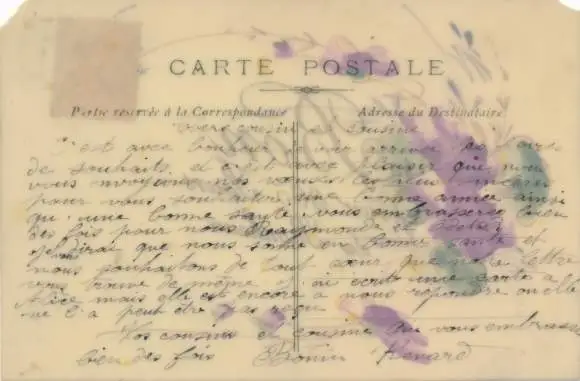 CARTE POSTALE
Partie réservée à la Correspondance
Adresse du Destinataire
cousin et cousine
C'est avec bonheur de voir arriver
de souhaits et c'est avec plaisir que nous
vous envoyons nos
pour vous souhaiter une bonne année ainsi
qu'une bonne santé vous embrasserez bien
des fois pour nous Raymonde et
dirai que nous somme en bonne santé et
nous souhaitons de tout cœur que notre lettre
vous trouve de même écrit une carte à
Alice mais elle est encore à nous répondre ou elle
ne l'a peut être pas reçu
Vos cousins et cousine qui vous embrasse
bien des fois Renard